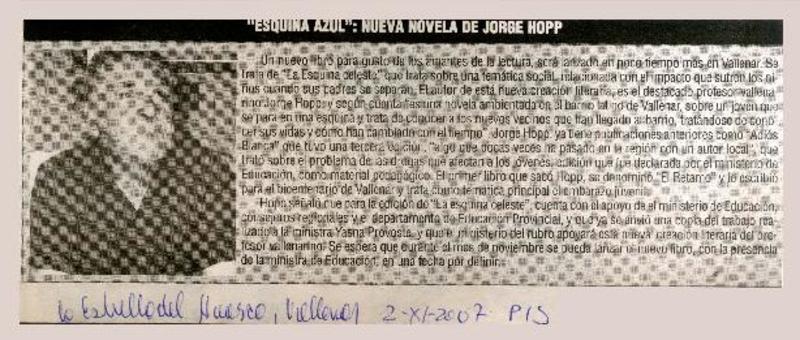 "ESQUINA AZUL": NUEVA NOVELA DE JORGE HOPP
Un nuevo libro para gusto de los amantes de la lectura, será lanzado en poco tiempo más en Vallenar. Se
trata de "La Esquina celeste" que trata sobre una temática social, relacionada con el impacto que sufren los ni-
ños cuando sus padres se separan. El autor de esta nueva creación literaria, es el destacado profesor vallena-
rino Jorge Hopp y según cuenta es una novela ambientada en el barrio latino de Vallenar, sobre un joven que
se para en una esquina y trata de conocer a los nuevos vecinos que han llegado al barrio, tratándose de cono-
cer sus vidas y cómo han cambiado con el tiempo". Jorge Hopp, ya tiene publicaciones anteriores como "Adiós
Blanca" que tuvo una tercera edición, "algo que pocas veces ha pasado en la región con un autor local", que
trató sobre el problema de las drogas que afectan a los jóvenes, edición que fue declarada por el ministerio de
Educación, como material pedagógico. El primer libro que sacó Hopp, se denominó "El Retamo" y lo escribió
para el bicentenario de Vallenar y trata como temática principal el embarazo juvenil.
Hopp señaló que para la edición de "La esquina celeste", cuenta con el apoyo del ministerio de Educación,
consejeros regionales y el departamento de Educación Provincial, y que ya se envió una copia del trabajo rea-
lizado a la ministra Yasna Provoste, y que el ministerio del rubro apoyará esta nueva creación literaria del pro-
fesor vallenarino. Se espera que durante el mes de noviembre se pueda lanzar el nuevo libro, con la presencia
de la ministra de Educación, en una fecha por definir.
La Estrella del Huasco, Vallenar 2-XI-2007 P15